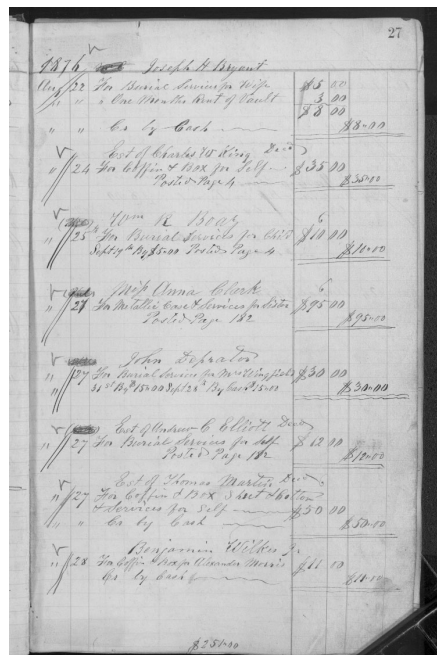 27
1876 Joseph H Bryant
Aug 22 For Burial Services for Wife $5 00
" " " One Months Rent of Vault 3 00
$8 00
" " Cr by Cash $8=00
Est of Charles W King Decd
" 24 For Coffin & Box for Self $35 00
Posted Page 4 $35=00
Wm R Boag
" 25 For Burial Services for Child $10 00
Sept 19th By $5=00 Posted Page 4 $10=00
Miss Anna Clark
" 27 For Metallic Case & Services for Sister $95 00
Posted Page 182 $95=00
John
" 27 For Burial Services for Mrs Wingfield $30 00
31st By $15=00 Sept 26th By Cash 15=00 $30=00
Est of Andrew C Elliott Decd
" 27 For Burial Services for Self $12 00
Posted Page 182 $12=00
Est of Thomas Martin Decd
" 27 For Coffin & Box Sheet & Cotton
& Services for Self $50 00
" " Cr by Cash $50=00
Benjamin Wilkes Jr
" 28 For Coffin & Box for Alexander Morris $11 00
Cr by Cash $11=00
$251=00